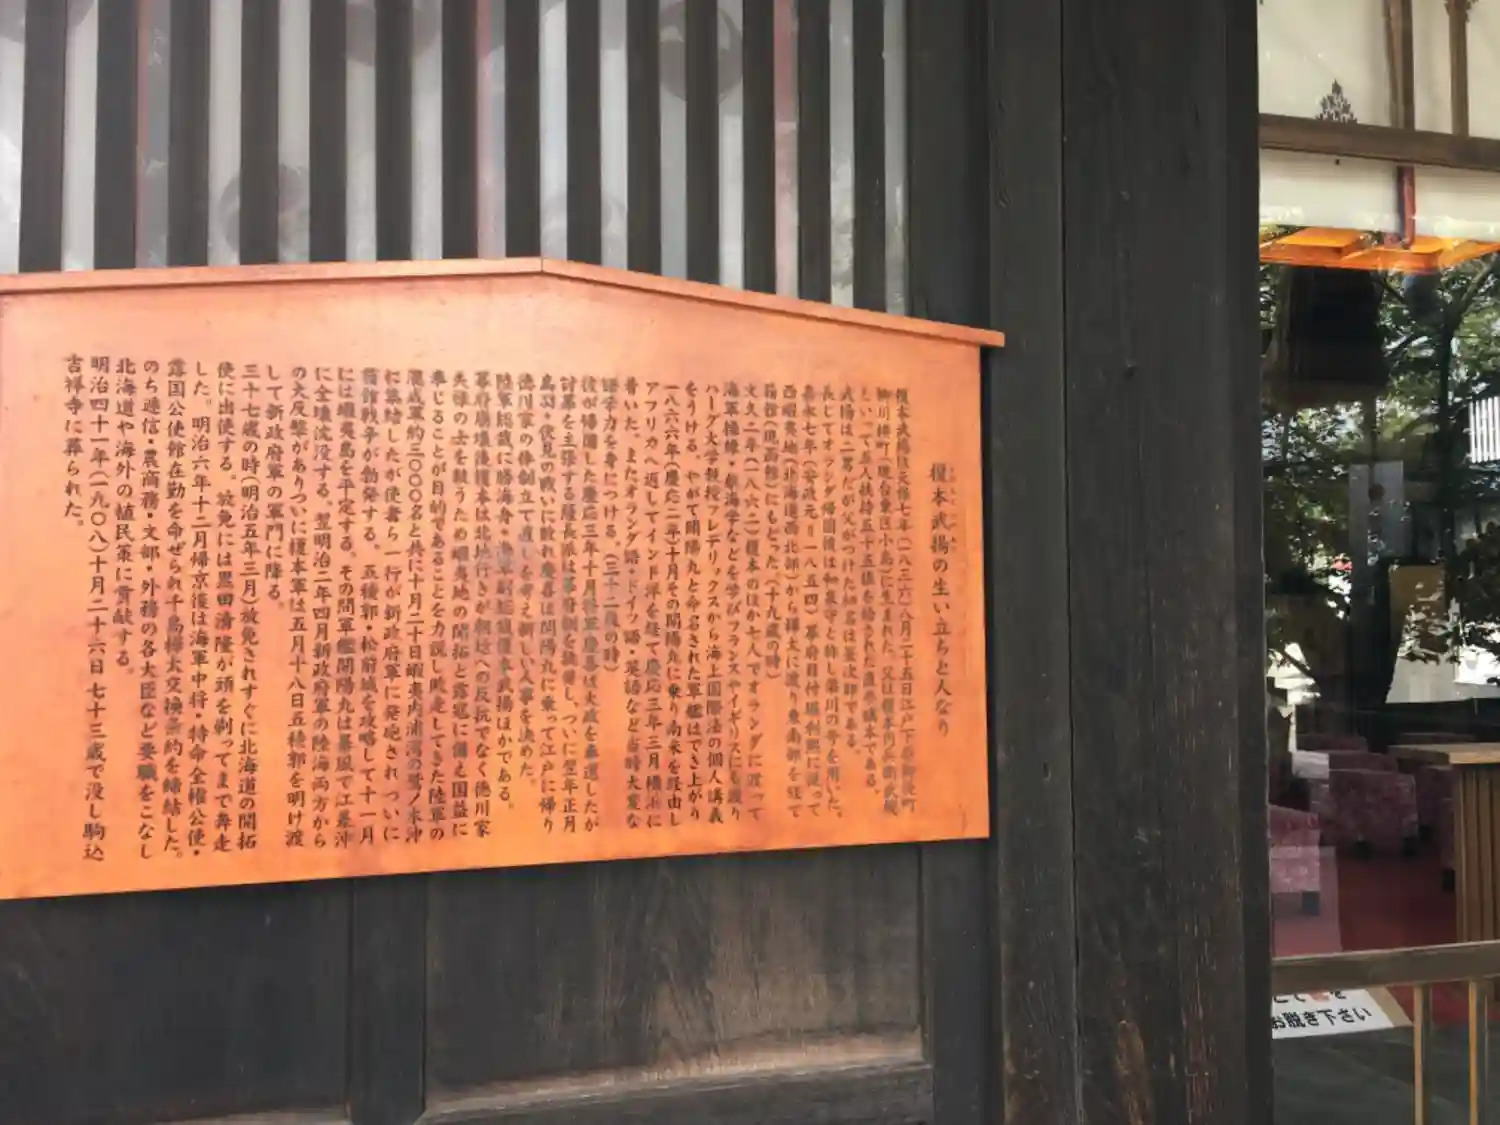 榎本武揚の生い立ちと人なり
榎本武揚は天保七年(一八三六)八月二十五日江戸下谷御徒町
柳川横町(現台東区小島)に生まれた。父は榎本円兵衛武規
といって五人扶持五十五俵を給された直参旗本である。
武揚は二男だが父がつけた幼名は釜次郎である。
長じてオランダ帰国後は和泉守と称し梁川の号を用いた。
嘉永七年(安政元年一八五四)幕府目付堀利煕に従って
西蝦夷地(北海道西北部)から樺太に渡り東南部を経て
箱館(現函館)にもどった(十九歳の時)
文久二年(一八六二)榎本のほか七人でオランダに渡って
海軍操練・航海学などを学びフランスやイギリスにも渡り
ハーグ大学教授フレデリックスから海上国際法の個人講義
をうける。やがて開陽丸と命名された軍艦はでき上がり
一八六六年(慶応二年)十月その開陽丸に乗り南米を経由し
アフリカへ返してインド洋を経て慶応三年三月横浜に
着いた。またオランダ語・ドイツ語・英語など当時大変な
語学力を身につける。(三十二歳の時)
彼が帰国した慶応三年十月将軍慶喜は大政を奉還したが
討幕を主張する薩長派は幕府側を挑発し、ついに翌年正月
鳥羽・伏見の戦いに敗れ慶喜は開陽丸に乗って江戸に帰り
徳川家の体制立て直しを考え新しい人事を決めた。
陸軍総裁に勝海舟・海軍副総裁榎本武揚ほかである。
幕府崩壊後榎本は北地行きが朝廷への反抗でなく徳川家
失禄の士を救うため蝦夷地の開拓と露寇に備え国益に
奉じることが目的であることを力説し敗走してきた陸軍の
濃成軍約三〇〇〇名と共に十月二十日蝦夷内浦湾の鷲ノ木沖
に集結したが使者ら一行が新政府軍に発砲され、ついに
箱館戦争が勃発する。五稜郭・松前城を攻略して十一月
には蝦夷島を平定する。その間軍艦開陽丸は暴風で江差沖
に全壊沈没する。翌明治二年四月新政府軍の陸海両方から
の大反撃がありついに榎本軍は五月十八日五稜郭を明け渡
して新政府軍の軍門に降る。
三十七歳の時(明治五年三月)放免されすぐに北海道の開拓
使に出使する。放免には黒田清隆が頭を剃ってまで奔走
した。明治六年十二月帰京後は海軍中将・特命全権公使・
露国公使館在勤を命ぜられ千島樺太交換条約を締結した。
のち逓信・農商務・文部・外務の各大臣など要職をこなし
北海道や海外の植民策に貢献する。
明治四十一年(一九〇八)十月二十六日七十三歳で没し駒込
吉祥寺に葬られた。
お脱き下さい